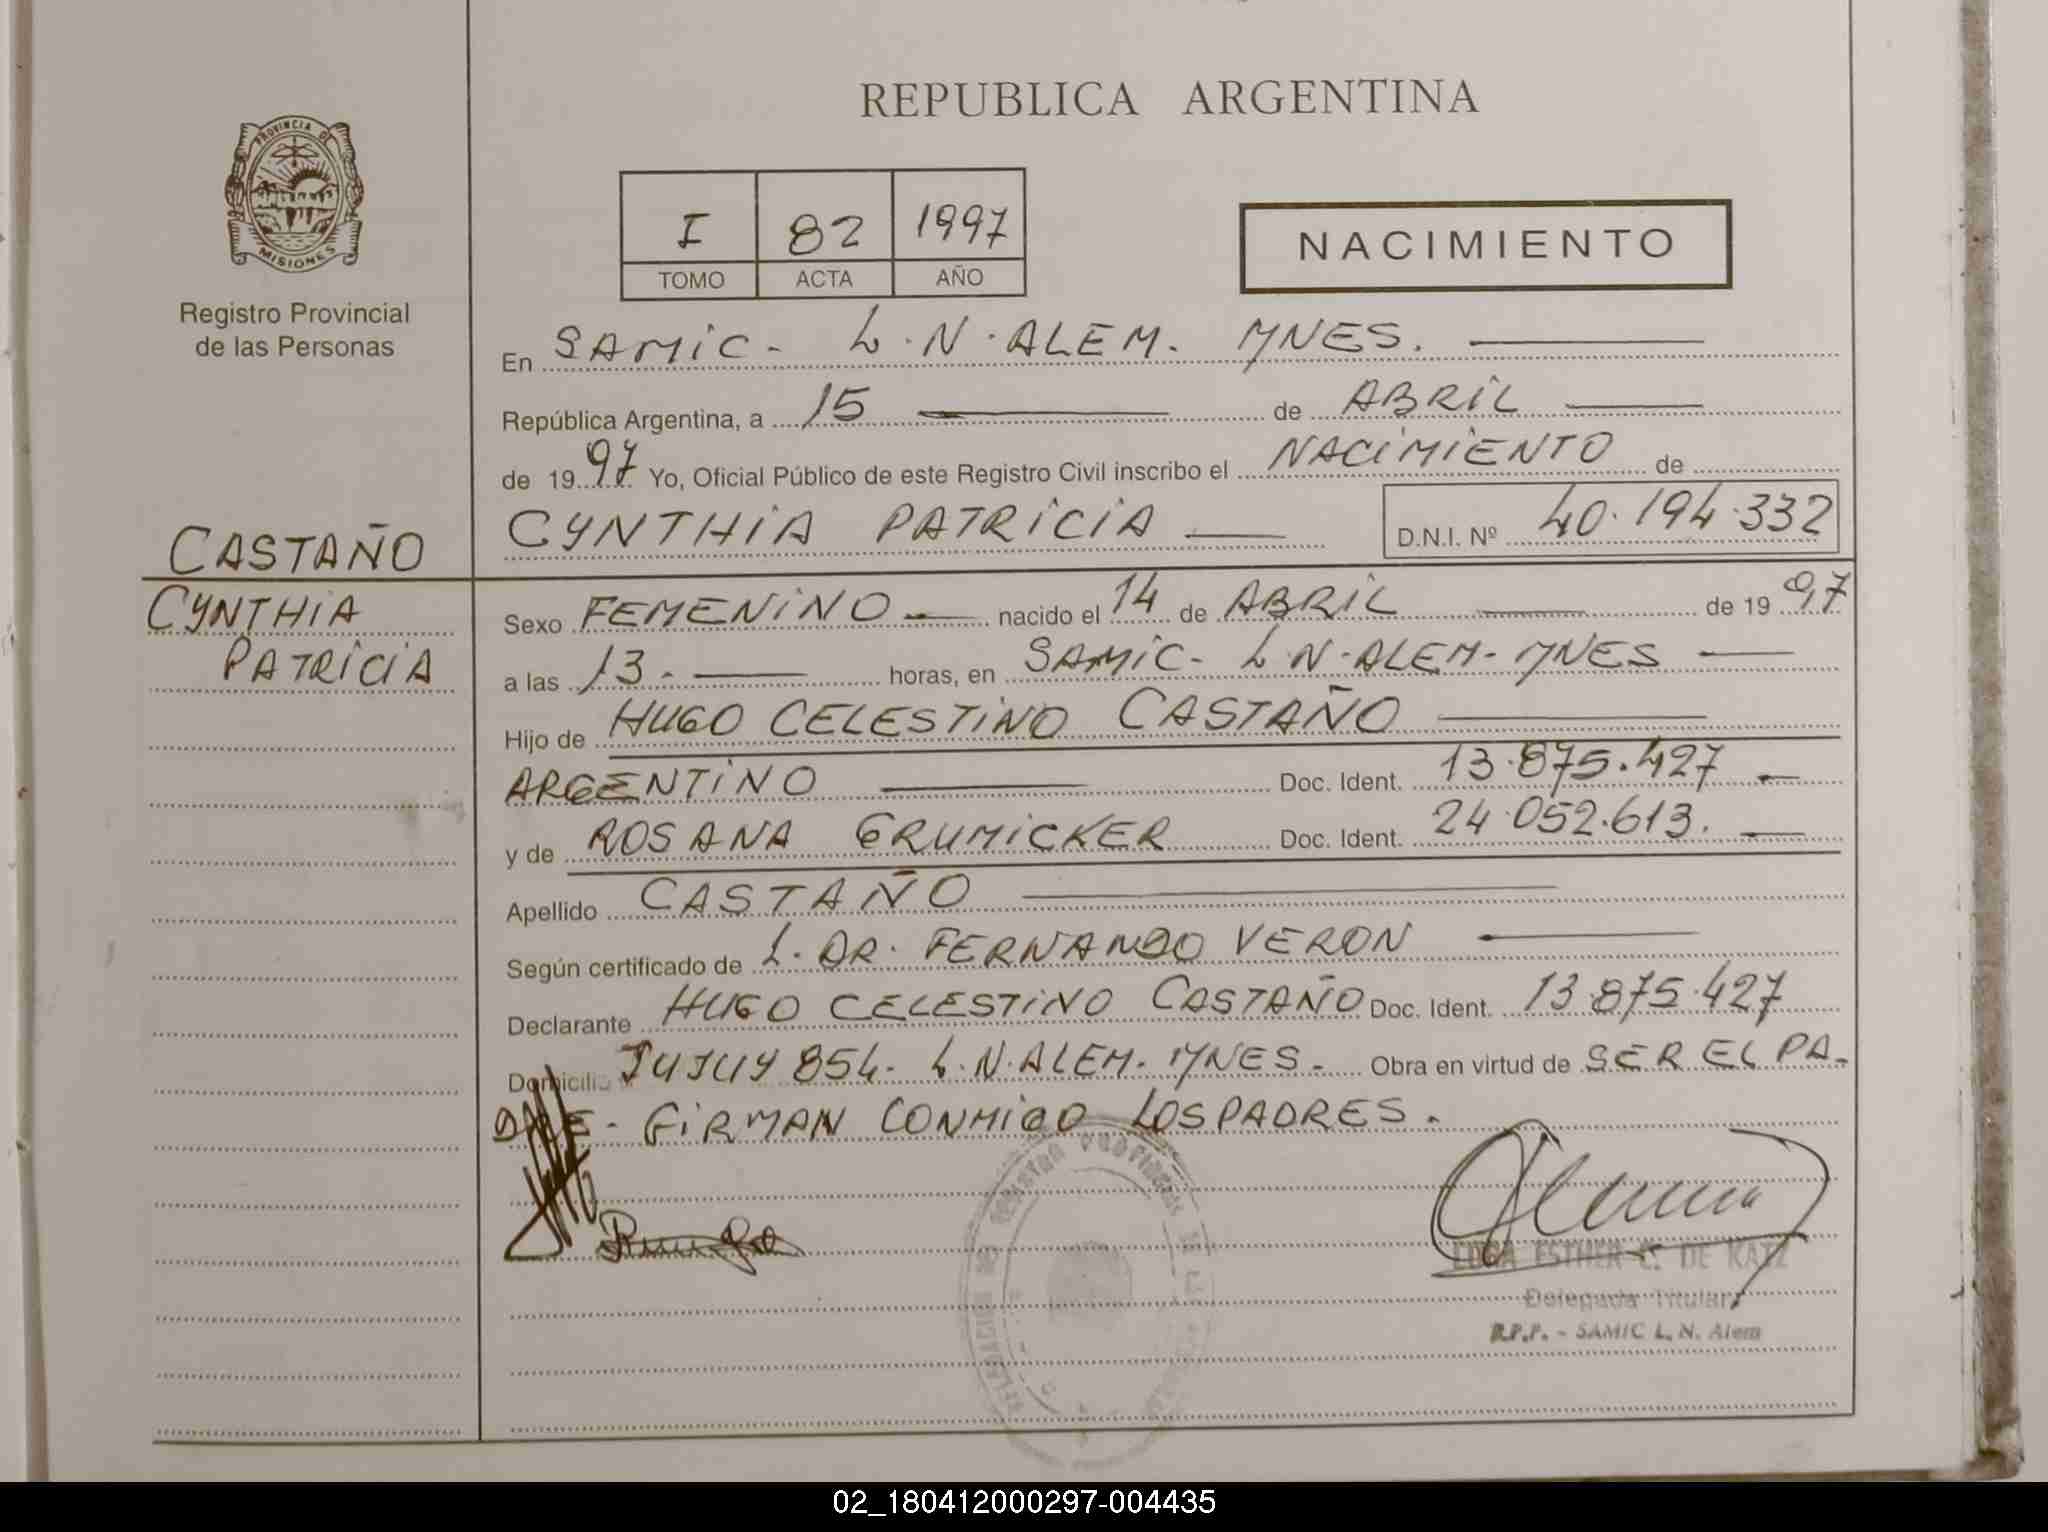 REPUBLICA ARGENTINA
PROVINCIA DE
MISIONES
Registro Provincial
de las Personas
I 82 1997
TOMO ACTA AÑO
NACIMIENTO
En SAMIC - L.N. ALEM. MNES.
República Argentina, a 15 de ABRIL
de 1997 Yo, Oficial Público de este Registro Civil inscribo el NACIMIENTO de
CYNTHIA PATRICIA D.N.I. Nº 40.194.332
CASTAÑO
CYNTHIA
PATRICIA
Sexo FEMENINO nacido el 14 de ABRIL de 1997
a las 13.- horas, en SAMIC- L.N. ALEM- MNES
Hijo de HUGO CELESTINO CASTAÑO
ARGENTINO Doc. Ident. 13.875.427
y de ROSANA GRUMICKER Doc. Ident. 24.052.613.
Apellido CASTAÑO
Según certificado de L. DR. FERNANDO VERON
Declarante HUGO CELESTINO CASTAÑO Doc. Ident. 13.875.427
Domicilio JUJUY 854- L.N. ALEM- MNES- Obra en virtud de SER EL PA-
DRE- FIRMAN CONMIGO LOS PADRES.
ESTHER C. DE KATZ
Delegada Titular
R.P.P. - SAMIC L. N. Alem
02_180412000297-004435